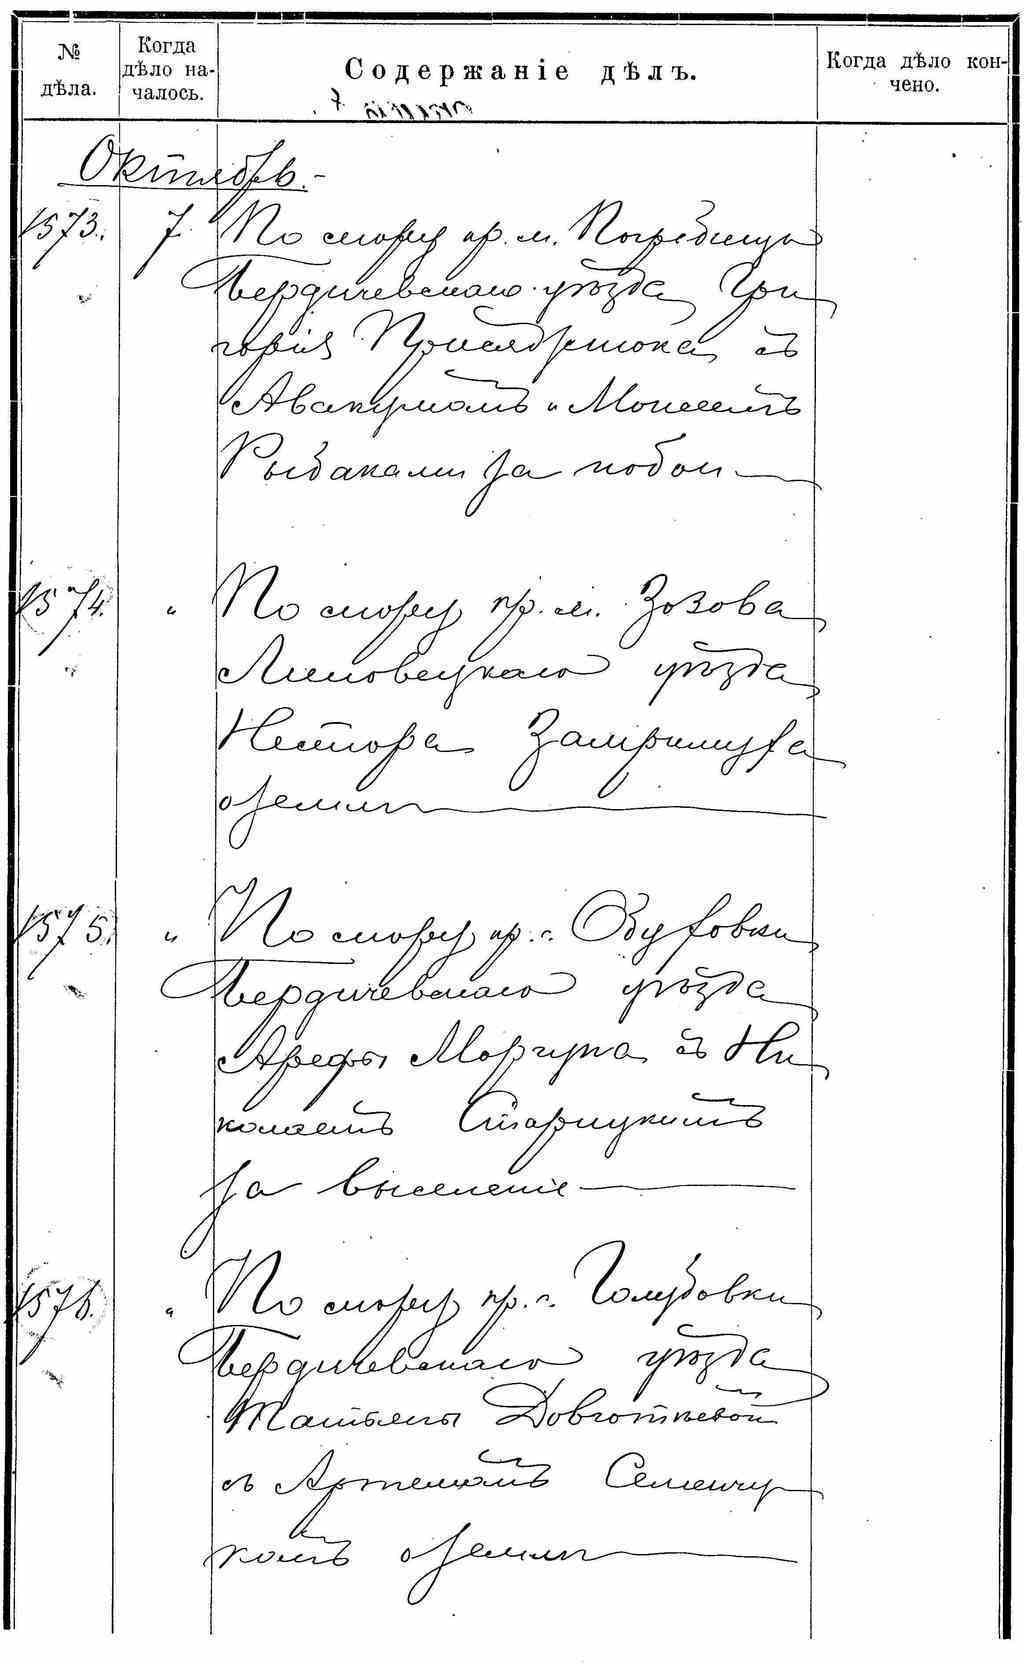 № дѣла.
Когда дѣло началось.
Содержаніе дѣлъ.
Когда дѣло кончено.
Октябрь.-
1573. 7. По спору кр. м. Погребищъ
Бердичевскаго уѣзда Гри
горія Присяжнюка съ
Авакумомъ и Моисеемъ
Рыбаками за побои
1574. " По спору кр. м. Зозова
Липовецкаго уѣзда
Нестора
о земли
1575. " По спору кр. с. Обуховки
Бердичевскаго уѣзда
Арефы Моргуна съ Ни
колаемъ Старицкимъ
за выселеніе
1576. " По спору кр. с. Голубовки
Бердичевскаго уѣзда
Татьяны
съ Артемомъ Семенчу
комъ о земли